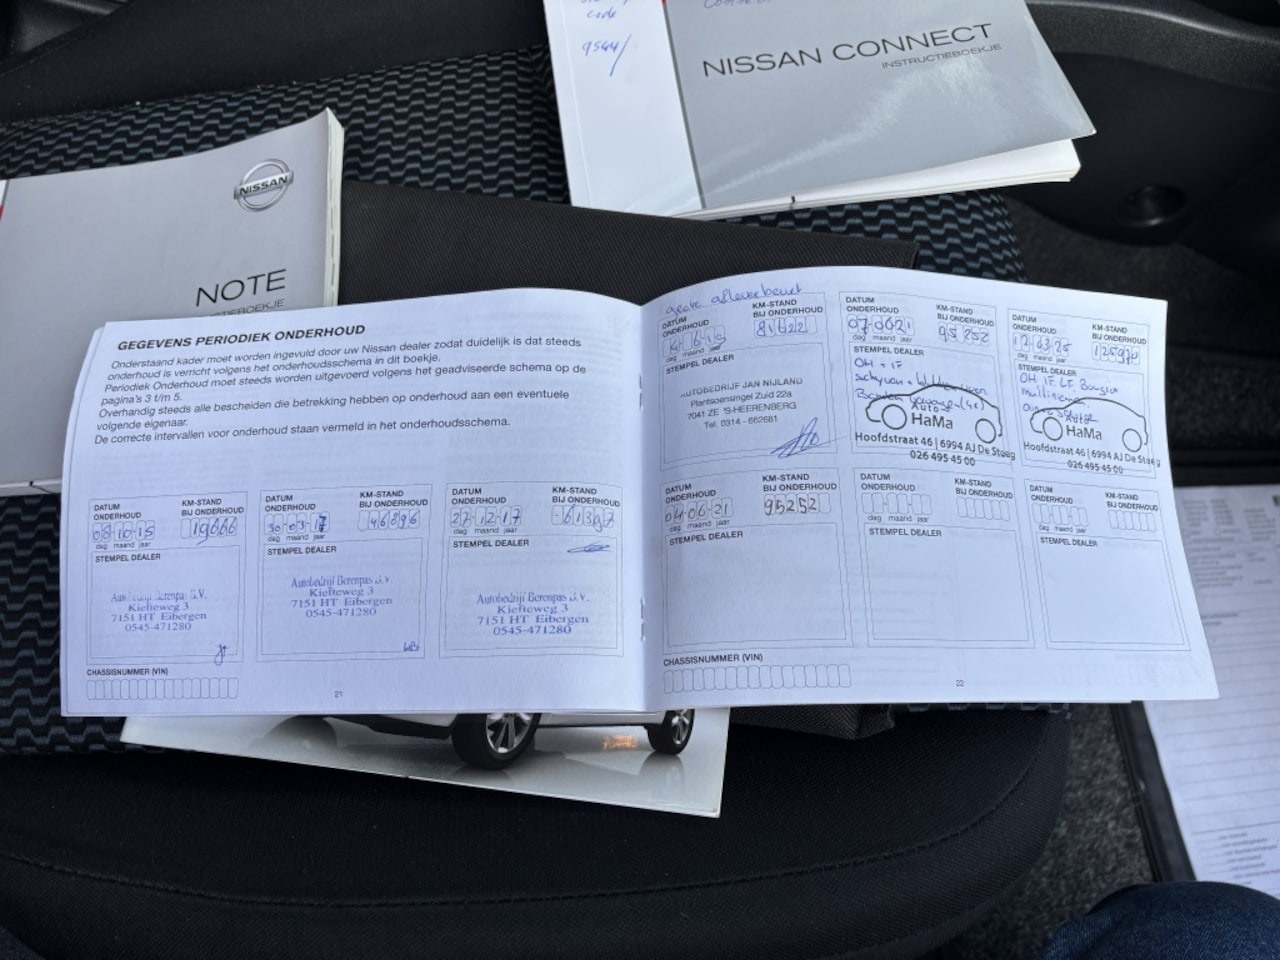 code
9544/
NISSAN CONNECT
INSTRUCTIEBOEKJE
NISSAN
NOTE
GEGEVENS PERIODIEK ONDERHOUD
Onderstaand kader moet worden ingevuld door uw Nissan dealer zodat duidelijk is dat steeds
onderhoud is verricht volgens het onderhoudsschema in dit boekje.
Periodiek Onderhoud moet steeds worden uitgevoerd volgens het geadviseerde schema op de
pagina's 3 t/m 5.
Overhandig steeds alle bescheiden die betrekking hebben op onderhoud aan een eventuele
volgende eigenaar.
De correcte intervallen voor onderhoud staan vermeld in het onderhoudsschema.
DATUM ONDERHOUD
KM-STAND BIJ ONDERHOUD
08-10-15
19666
dag maand jaar
STEMPEL DEALER
Autobedrijf Berenpas B.V.
Kiefteweg 3
7151 HT Eibergen
0545-471280
DATUM ONDERHOUD
KM-STAND BIJ ONDERHOUD
30-03-17
46896
dag maand jaar
STEMPEL DEALER
Autobedrijf Berenpas B.V.
Kiefteweg 3
7151 HT Eibergen
0545-471280
DATUM ONDERHOUD
KM-STAND BIJ ONDERHOUD
27-12-17
61367
dag maand jaar
STEMPEL DEALER
Autobedrijf Berenpas B.V.
Kiefteweg 3
7151 HT Eibergen
0545-471280
CHASSISNUMMER (VIN)
21
grote afleverbeurt
DATUM ONDERHOUD
KM-STAND BIJ ONDERHOUD
81622
dag maand jaar
STEMPEL DEALER
AUTOBEDRIJF JAN NIJLAND
Plantsoensingel Zuid 22a
7041 ZE 'S-HEERENBERG
Tel. 0314 - 662681
DATUM ONDERHOUD
KM-STAND BIJ ONDERHOUD
070621
95252
dag maand jaar
STEMPEL DEALER
OH + IF
Auto
HaMa
Hoofdstraat 46 | 6994 AJ De Steeg
026 495 45 00
DATUM ONDERHOUD
KM-STAND BIJ ONDERHOUD
12-03-25
dag maand jaar
STEMPEL DEALER
OH IF LF Bougies
multiriem
Auto
HaMa
Hoofdstraat 46 | 6994 AJ De Steeg
026 495 45 00
DATUM ONDERHOUD
KM-STAND BIJ ONDERHOUD
04-06-21
95252
dag maand jaar
STEMPEL DEALER
DATUM ONDERHOUD
KM-STAND BIJ ONDERHOUD
dag maand jaar
STEMPEL DEALER
DATUM ONDERHOUD
KM-STAND BIJ ONDERHOUD
dag maand jaar
STEMPEL DEALER
CHASSISNUMMER (VIN)
22